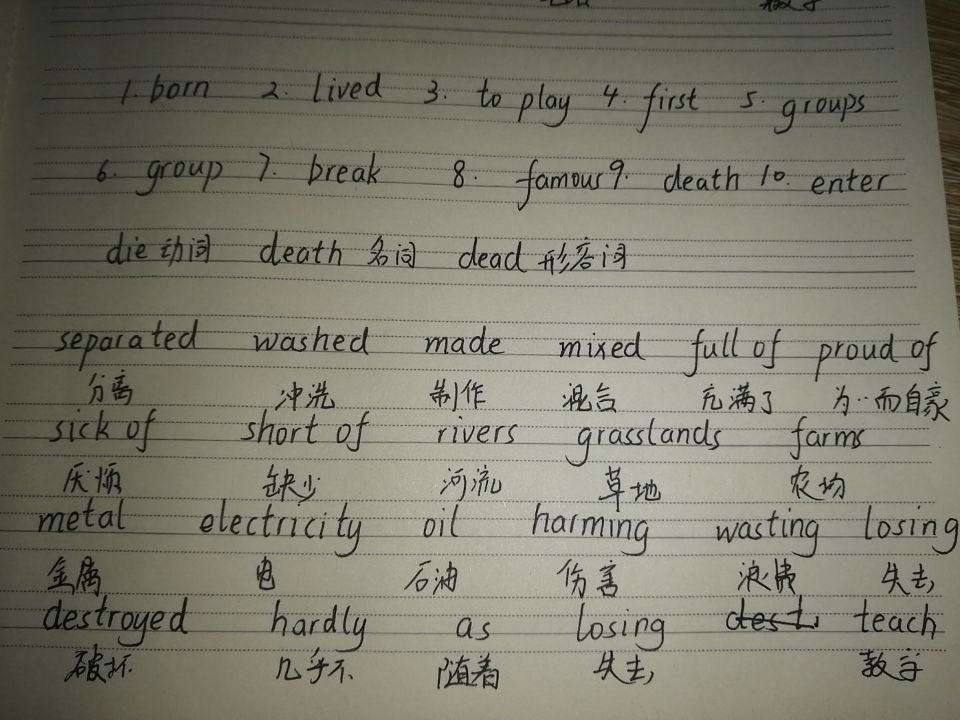 1. born 2. lived 3. to play 4. first 5. groups
6. group 7. break 8. famous 9. death 10. enter
die 动词 death 名词 dead 形容词
separated washed made mixed full of proud of
分离 冲洗 制作 混合 充满了 为··而自豪
sick of short of rivers grasslands farms
厌烦 缺少 河流 草地 农场
metal electricity oil harming wasting losing
金属 电 石油 伤害 浪费 失去
destroyed hardly as losing teach
破坏 几乎不 随着 失去 教学